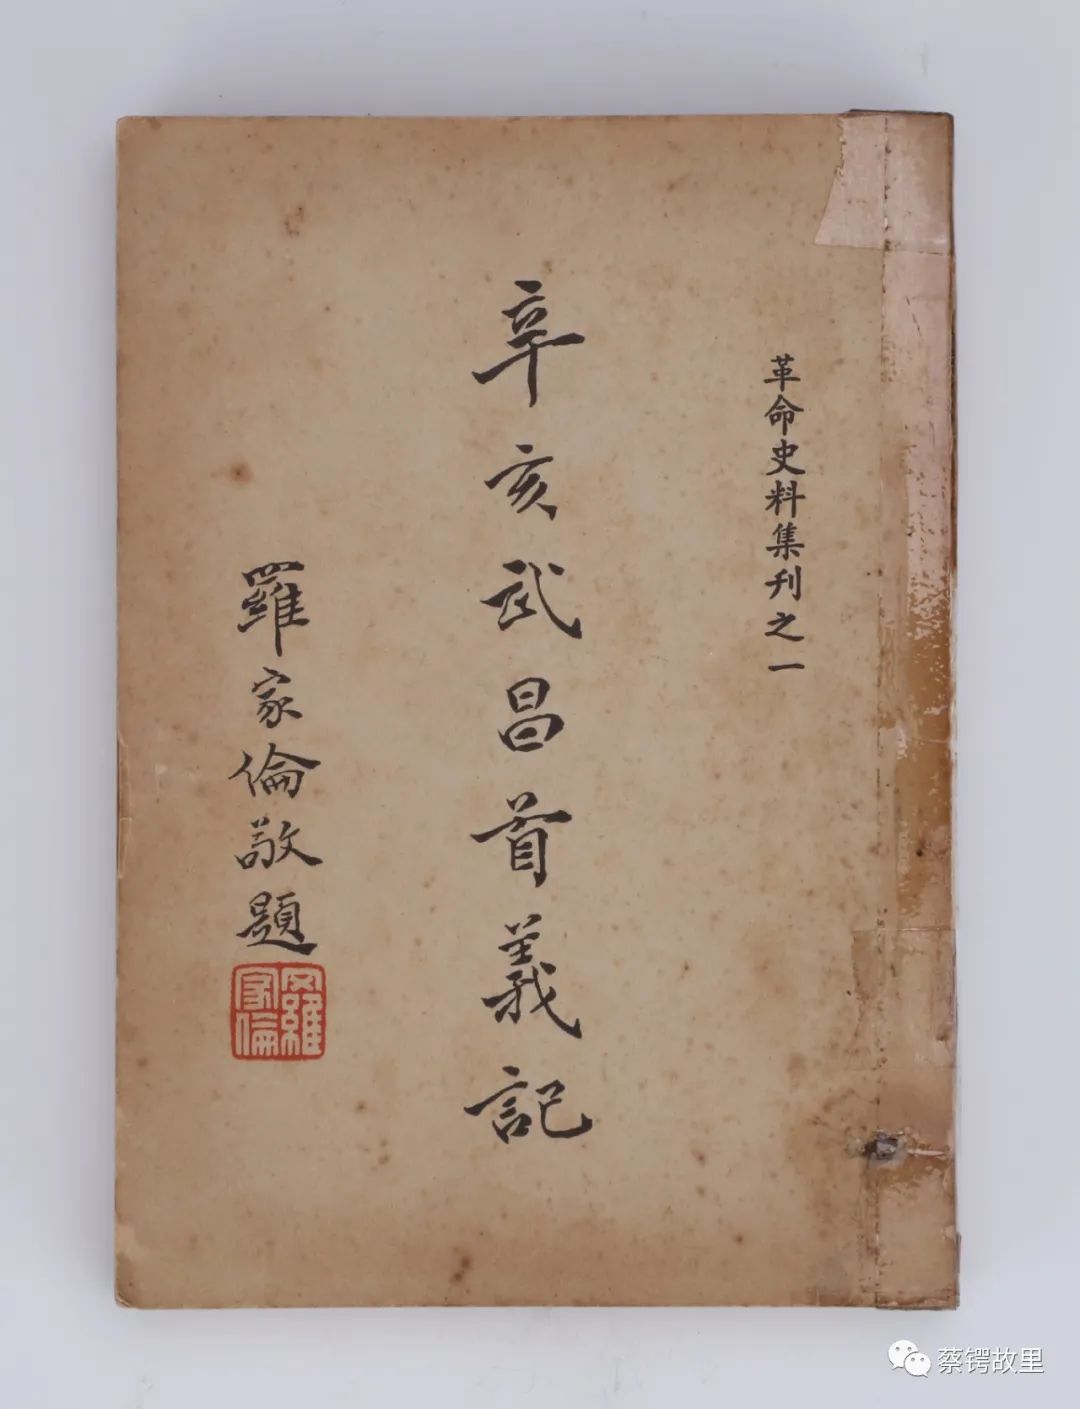 革命史料集刊之一
辛亥武昌首義記
羅家倫敬題
羅家倫
蔡锷故里